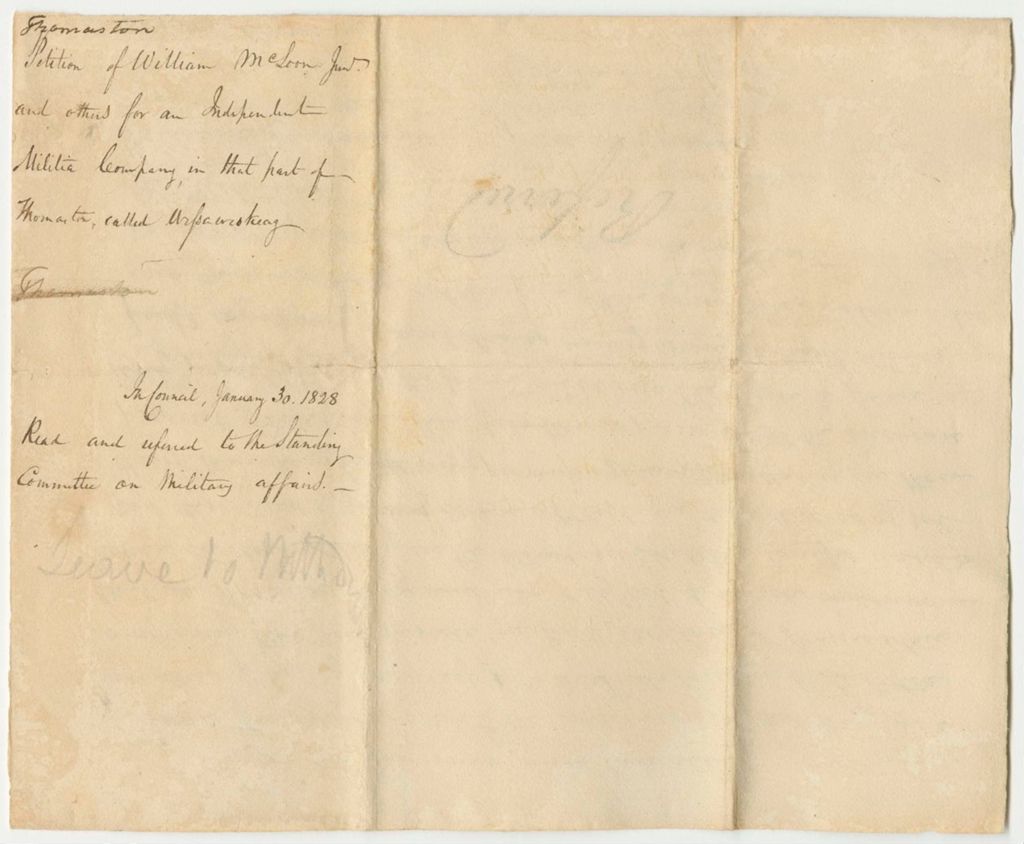 Thomaston
Petition of William McLoon Junr.
and others for an Independent
Militia Company, in that part of
Thomaston, called Wessaweskeag
Thomaston
In Council, January 30. 1828
Read and referred to the Standing
Committee on Military affairs. —
Leave to